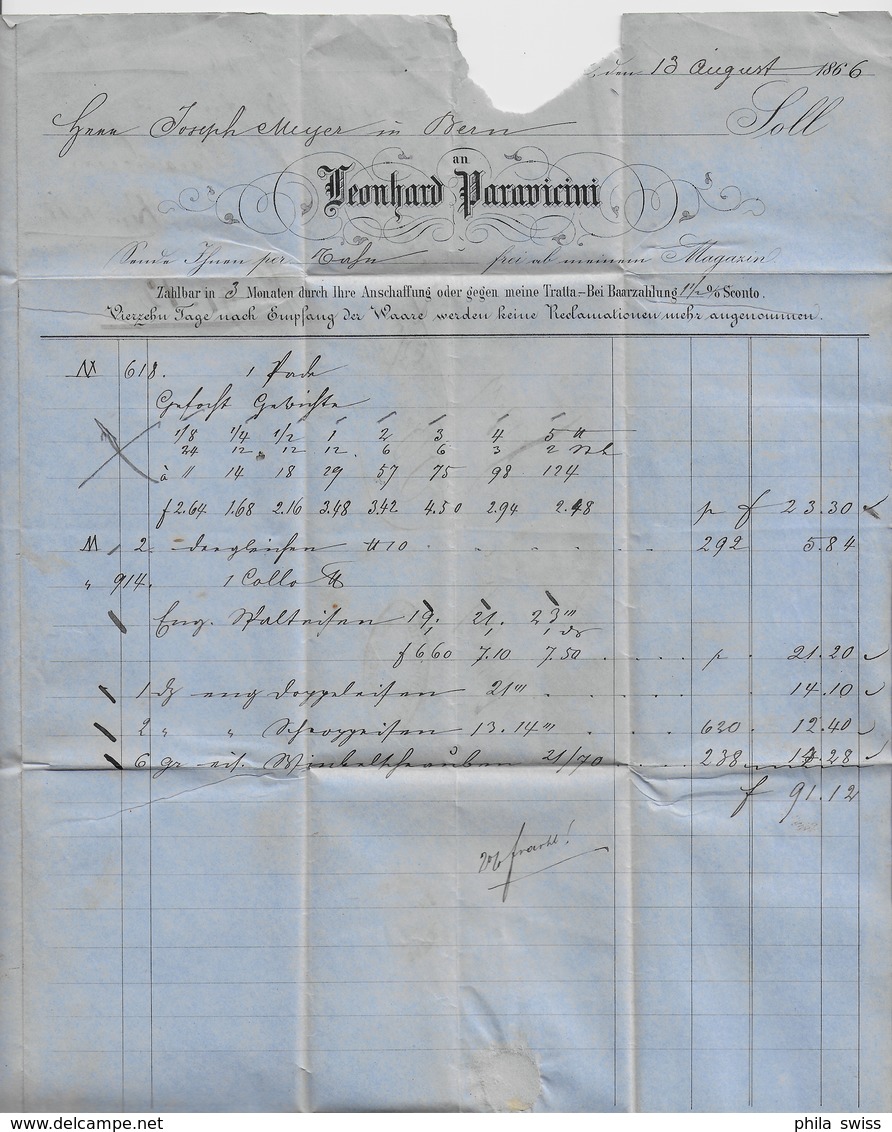 den 13 August 1866
Herrn Joseph Meyer in Bern Soll
an
Leonhard Paravicini
Sende Ihnen per Bahn frei ab meinem Magazin
Zahlbar in 3 Monaten durch Ihre Anschaffung oder gegen meine Tratta.– Bei Baarzahlung 1½% Sconto.
Vierzehn Tage nach Empfang der Waare werden keine Reclamationen mehr angenommen.
618. 1
Gewichte
1/8 1/4 1/2 1 2 3 4 5 ℔
24 12 12 12 6 6 3 2
à " 14 18 29 57 75 98 124
f 2.64 1.68 2.16 3.48 3.42 4.50 2.94 2.48 p f 23.30
2 dergleichen ℔ 10 292 5.84
" 914. 1 Collo
Eng. 19. 21. 23'''
f 6.60 7.10 7.50 p 21.20
1 dz eng Doppeleisen 21''' 14.10
2 " " Schroppeisen 13.14''' 620 12.40
6 gr eis. Winkelschrauben 21/70 238 14.28
f 91.12
phila swiss